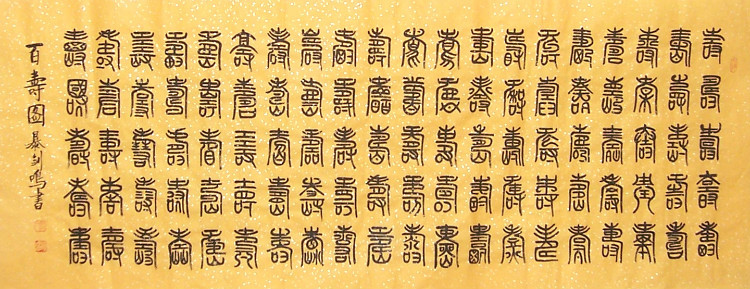 壽壽壽壽壽
壽壽壽壽壽
壽壽壽壽壽
壽壽壽壽壽
壽壽壽壽壽
壽壽壽壽壽
壽壽壽壽壽
壽壽壽壽壽
壽壽壽壽壽
壽壽壽壽壽
壽壽壽壽壽
壽壽壽壽壽
壽壽壽壽壽
壽壽壽壽壽
壽壽壽壽壽
壽壽壽壽壽
壽壽壽壽壽
壽壽壽壽壽
壽壽壽壽壽
壽壽壽壽壽
百壽圖 剑鸣書